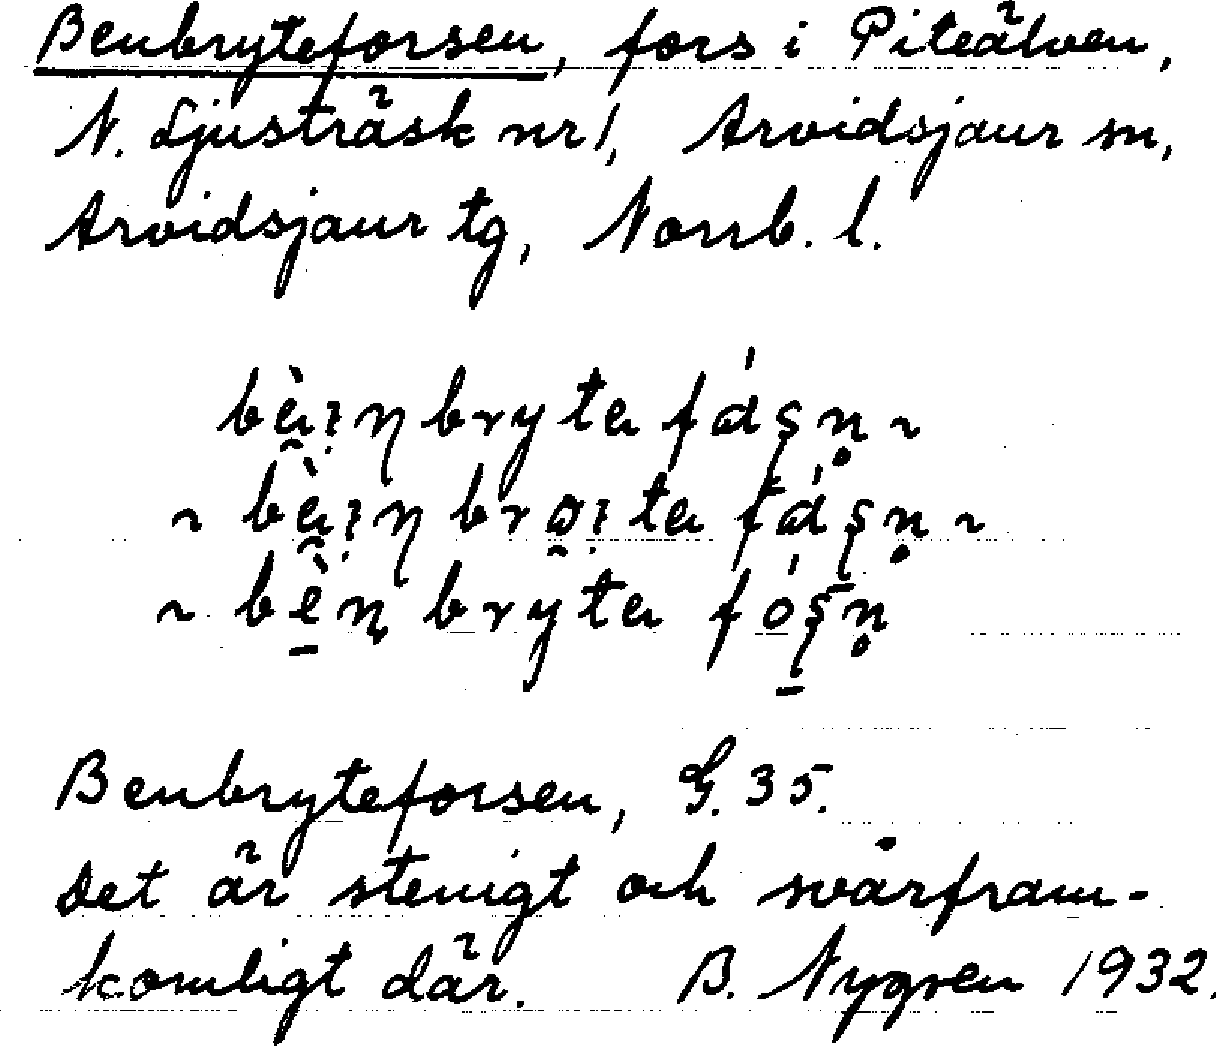 Benbryteforsen, fors i Piteälven,
N. Ljusträsk nr 1, Arvidsjaur sn,
Arvidsjaur tg, Norrb. l.
~
~ ~
~
Benbryteforsen, G. 35.
Det är stenigt och svårfram-
komligt där. B. Nygren 1932.